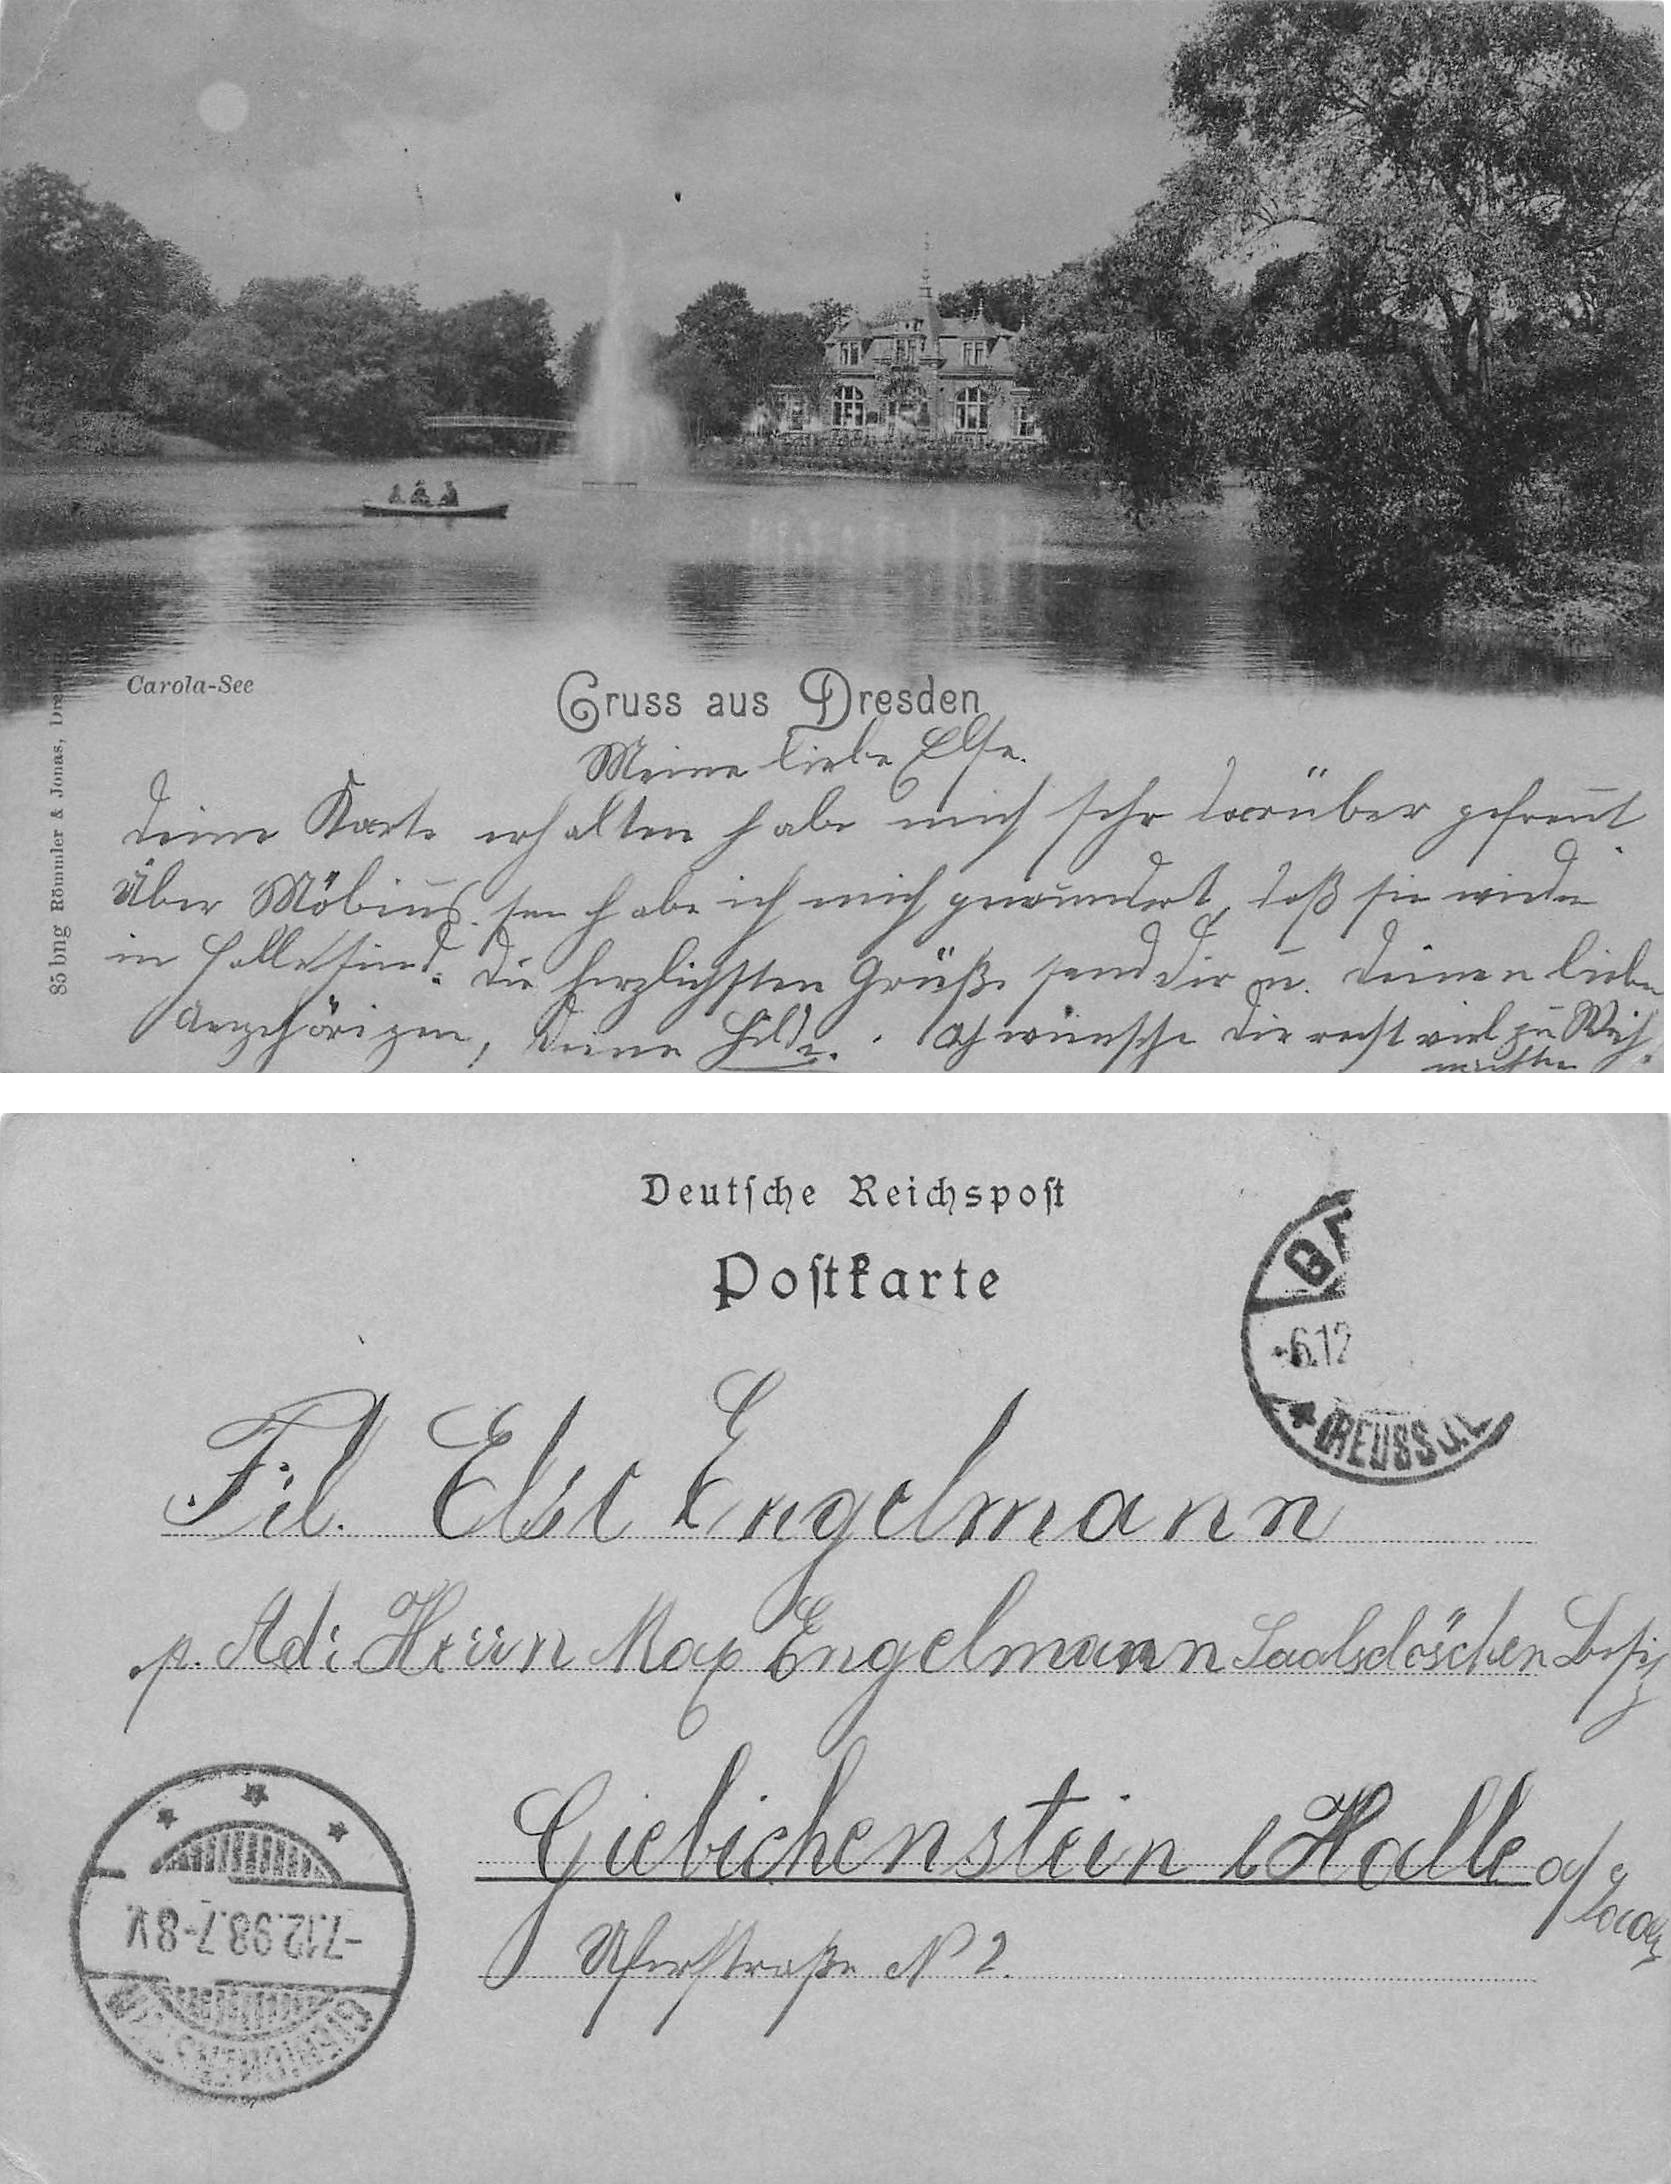 Carola-See
Gruss aus Dresden
85 bng Römmler & Jonas, Dres
Meine liebe Else.
Deine Karte erhalten habe mich sehr darüber gefreut
Über Möbius habe ich mich gewundert, daß sie wieder
in Halle sind. Die herzlichsten Grüße send Dir u. Deinen lieben
Angehörigen, Deine Hilde. Ich wünsche Dir recht viel zu Weih-
nachten
Deutsche Reichspost
Postkarte
-6.12
REUSS J.L
Frl. Else Engelmann
p. Adr: Herrn Max Engelmann Saalschlößchen
Giebichenstein b Halle a/Saale
Uferstraße N 2.
-7.12.98.7-8V.
GIEBICHENSTEIN